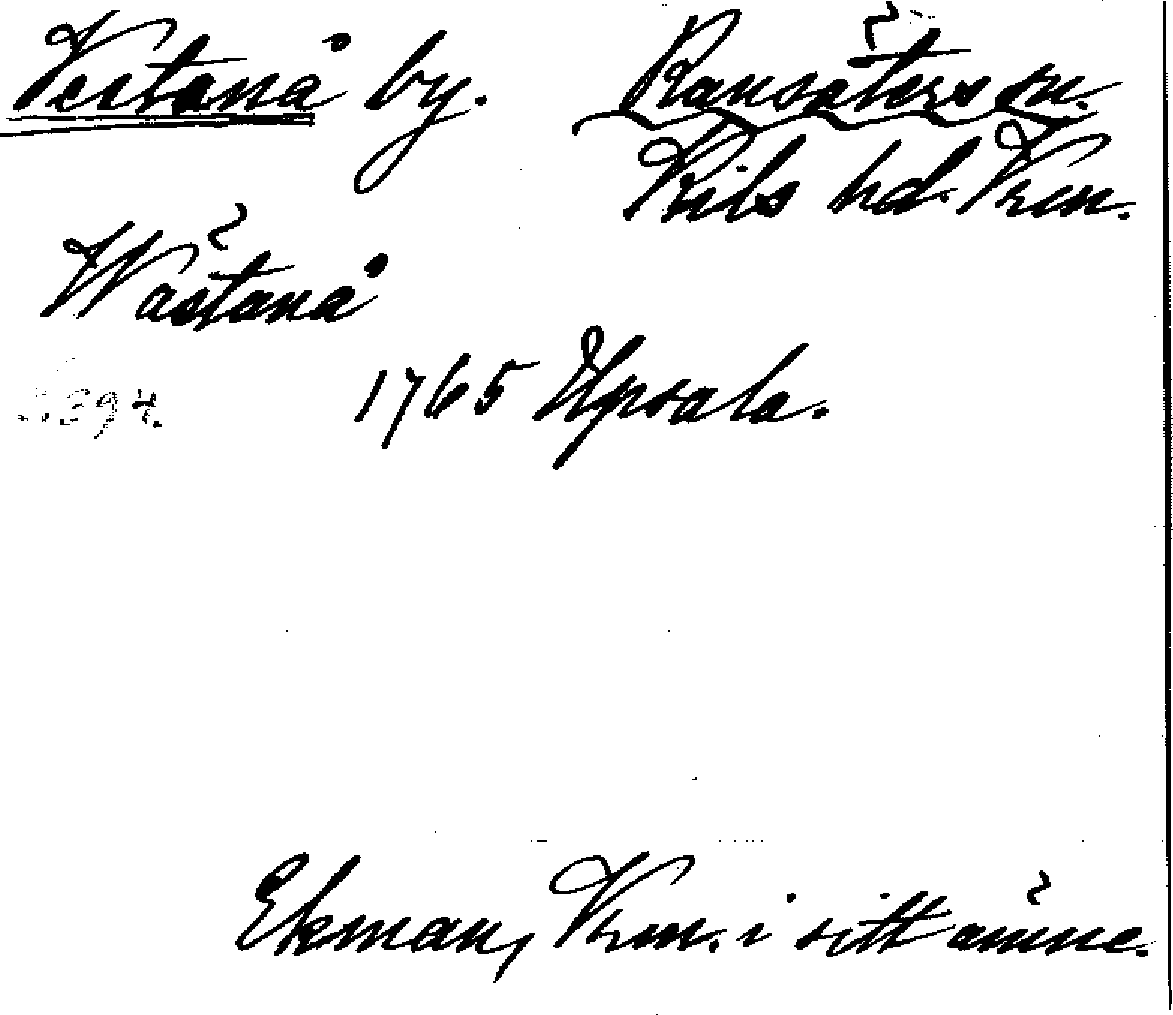 Vestanå by.
Ransäters sn.
Kils hd. Vrm.
Wästanå
1765 Upsala.
Ekman, Vrm. i sitt ämne.